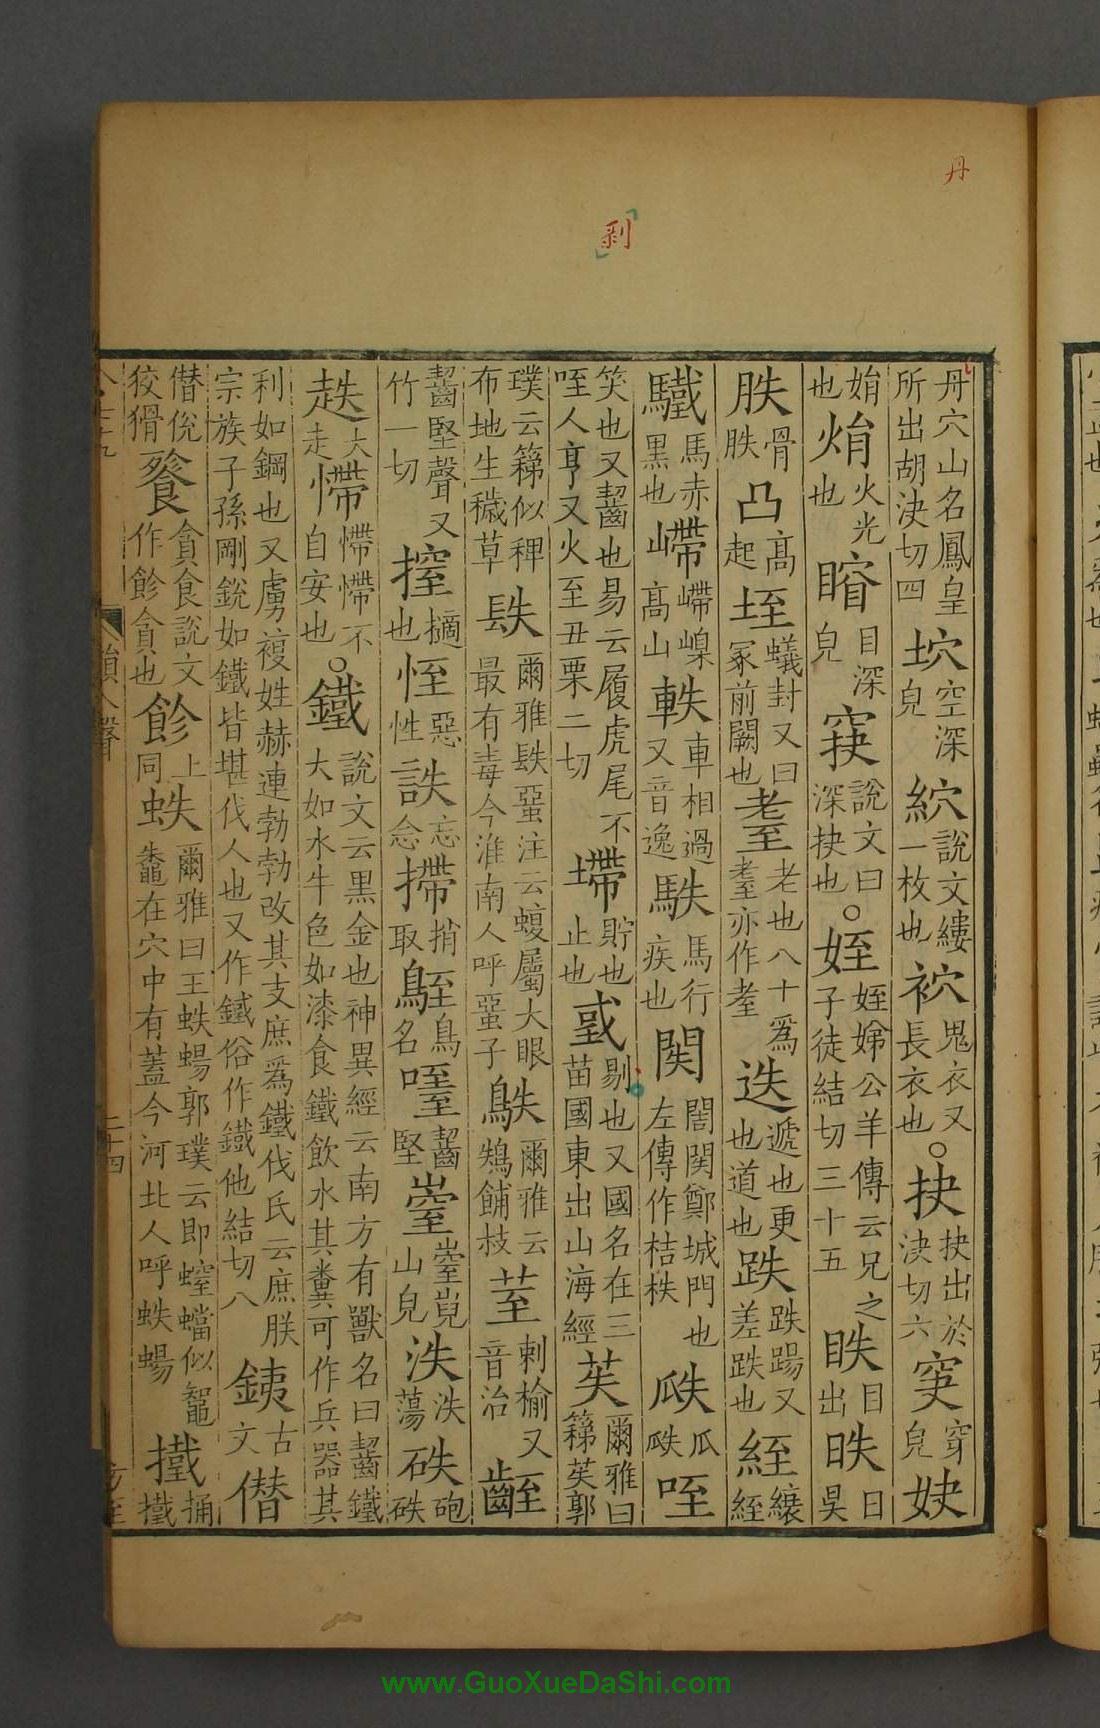 丹穴山名鳳皇所出胡決切四坹空深皃䋉說文縷一枚也袕鬼衣又長衣也。抉抉出於決切六穿皃妜
娟也焆火光也目深皃說文曰深抉也。姪姪娣公羊傳云兄之子徒結切三十五眣目出昳日昃
胅骨胅凸高起垤蟻封又曰冢前闕也耋老也八十爲耋亦作耊迭遞也更也道也跌跌踼又差跌也絰縗絰
驖馬赤黑也嵽嵽嵲高山軼車相過又音逸䭿馬行疾也鄭城門也左傳作桔柣瓞瓜瓞咥
笑也又齧也易云履虎尾不咥人亨又火至丑栗二切墆貯也止也臷剔也又國名在三苗國東出山海經苵爾雅曰蕛苵郭
璞云蕛似稗布地生穢草镻爾雅镻蝁注云蝮屬大眼最有毒今淮南人呼蝁子鴩爾雅云鴩餔枝荎刺榆又音治
齧堅聲又竹一切擿也恎惡性詄忘念摕捎取鳥名齧堅山皃泆泆蕩
趃大走不自安也。鐵說文云黑金也神異經云南方有獸名曰齧鐵大如水牛色如漆食鐵飲水其糞可作兵器其
利如鋼也又虜複姓赫連勃勃改其支庶爲鐵伐氏云庶朕宗族子孫剛銳如鐵皆堪伐人也又作鐵俗作鐡他結切八銕古文僣
僣侻狡猾餮貪食說文作飻貪也飻同上蛈爾雅曰王蛈蝪郭璞云即螲蟷似鼅鼄在穴中有蓋今河北人呼蛈蝪㨙捅㨙
丹
剔
www.GuoXueDaShi.com